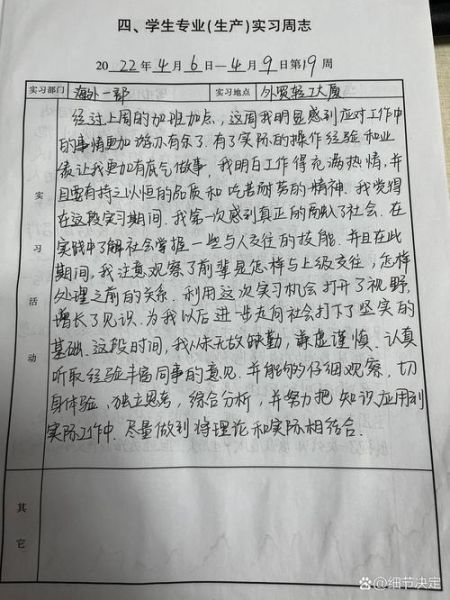 四、学生专业(生产)实习周志
2022年4月6日—4月9日第19周
实习部门 海外一部 实习地点 外贸轻工大厦
经过上周的加班加点，这周我明显感到应对工作中
的事情更加游刃有余了．有了实际的操作经验和业
绩让我更加有底气做事．我明白工作得充满热情，并
且要有持之以恒的品质和吃苦耐劳的精神．我觉得
在这段实习期间，我第一次感到真正的融入了社会．在
实践中了解社会掌握一些与人交往的技能．并且在此
期间，我注意观察了前辈是怎样与上级交往，怎样
处理之前的关系．利用这次实习机会打开了视野，
增长了见识．为我以后进一步走向社会打下了坚实的
基础．这段时间，我从未无故缺勤，谦虚谨慎．认真
听取经验丰富同事的意见，并能够仔细观察，切
身体验、独立思考，综合分析，并努力把知识应用到
实际工作中．尽量做到将理论和实际相结合．
实习活动
其它
@细节决定